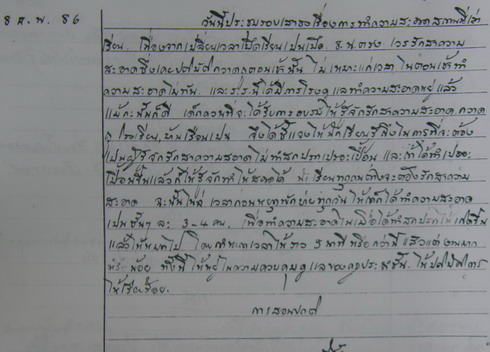 8 ต.พ. 86 วันนี้ประชุมรอบเสาธงเรื่องการทำความสะอาดสถานที่เล่า
เรียน. เนื่องจากเปลี่ยนเวลาเปิดเรียนเป็นเปิด ๖.น.ตรง เวรรักษาความ
สะอาดซึ่งเคยปฏิบัติกวาดถูตอนเช้านั้น ไม่เหมาะแก่เวลา ในตอนเช้าทำ
ความสะอาดไม่ทัน. และ ร.ร.นี้ได้มีภารโรงดูแลทำความสะอาดอยู่แล้ว
แม้กะนั้นก็ดี เด็กควรที่จะได้รับการอบรมให้รู้จักรักษาความสะอาด. กวาด
ถูโรงเรียน, บ้านเรือนเป็น จึงได้ชี้แจงให้นักเรียนรู้ถึงในการที่จะต้อง
เป็นผู้รู้จักรักษาความสอาด ไม่ทำสกปรกเปรอะเปื้อน และถ้าได้ทำเปรอะ
เปื้อนขึ้นแล้ว ก็ให้รู้จักทำให้สอาดได้ นักเรียนทุกคนต้องรักษาความ
สะอาด ฉะนั้นให้ เวลาก่อนหยุดพักเที่ยงทุกวัน ให้เด็กได้ทำความสะอาด
เป็นชั้นๆ ละ 3-4 คน. เพื่อทำความสะอาดในเมื่อได้ทำสกปรก เกิดขึ้น
แล้วให้หมดไป โดยกำหนดเวลาให้ราว 5 นาที หรือกว่านี้ แล้วแต่งานมาก
หรือน้อย ทั้งนี้ ให้อยู่ในความควบคุมดูแลของครูประจำชั้น. ให้ปฏิบัติการ
ให้เรียบร้อย.
การสอนปกติ